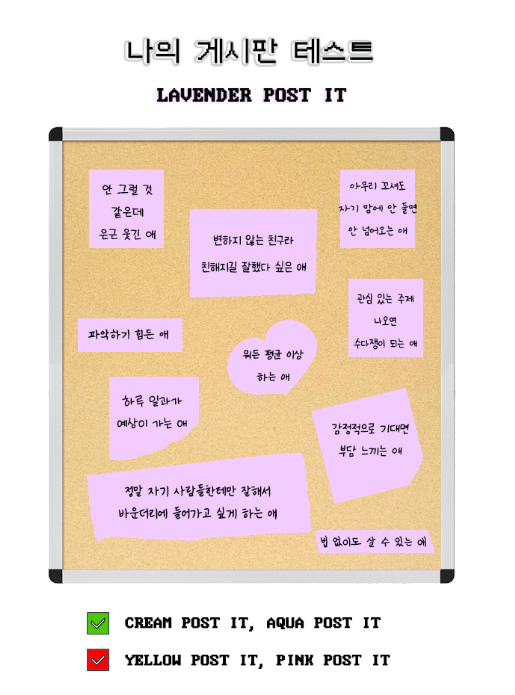 나의 게시판 테스트
LAVENDER POST IT
안 그럴 것
같은데
은근 웃긴 애
아무리 꼬셔도
자기 맘에 안 들면
안 넘어오는 애
변하지 않는 친구라
친해지길 잘했다 싶은 애
관심 있는 주제
나오면
수다쟁이 되는 애
파악하기 힘든 애
뭐든 평균 이상
하는 애
하루 일과가
예상이 가는 애
감정적으로 기대면
부담 느끼는 애
정말 자기 사람들한테만 잘해서
바운더리에 들어가고 싶게 하는 애
법 없이도 살 수 있는 애
CREAM POST IT, AQUA POST IT
YELLOW POST IT, PINK POST IT